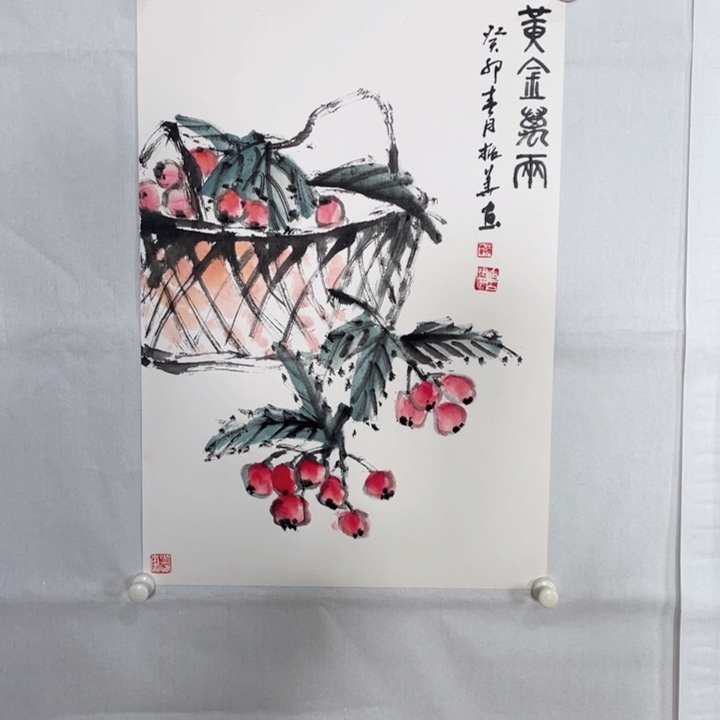 黃金萬兩
癸卯春月振美畫